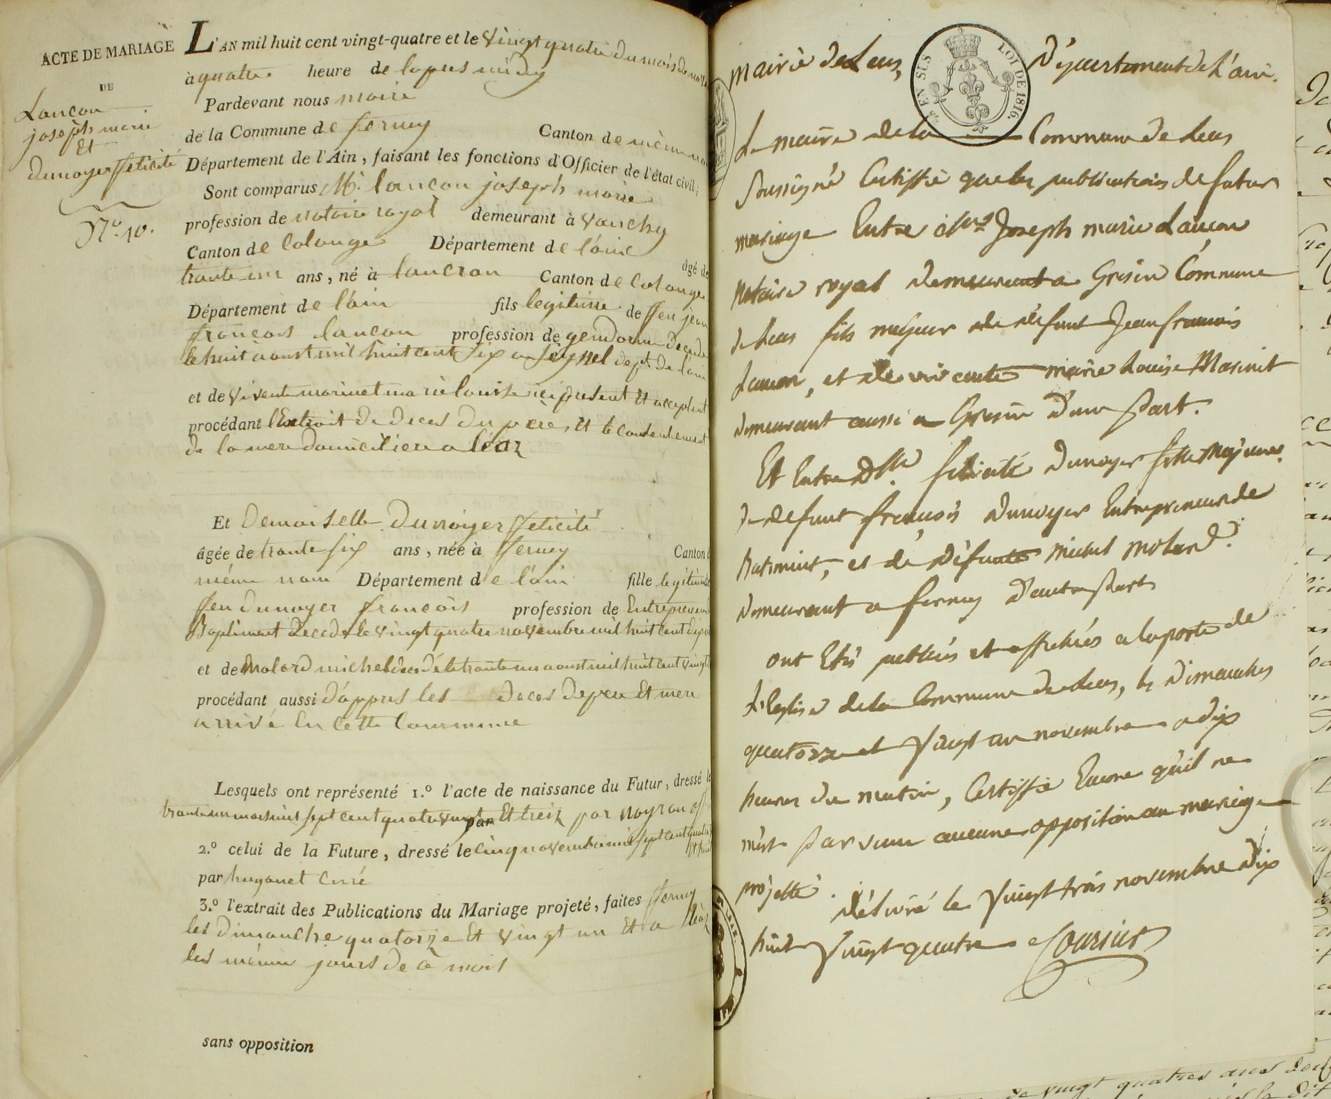 ACTE DE MARIAGE
DE
Lançon
joseph marie
Et
dunoyer ffelicité
N.º 40.
L'AN mil huit cent vingt-quatre et le vingt quatre du mois de
à quatre heure de lapres midy
Pardevant nous maire
de la Commune de ferney Canton de même
Département de l'Ain, faisant les fonctions d'Officier de l'état civil,
Sont comparus Mr. lancon joseph marie
profession de notaire royal demeurant à Vanchy
Canton de Colonge Département de l'ain âgé de
trante un ans, né à lancran Canton de Colonge
Département de l'ain fils legitime de ffeu jean
françois lancon profession de gendarme decedé
le huit aoust mil huit cent six a seyssel dept. de l'ain
et de vivante marinet marie louise ici present et acceptent
procédant l'Extrait de deces du pere, Et le consentement
de la mere domiciliere a Leaz
Et Demoiselle Dunoyer ffelicité
âgée de trante six ans, née à fferney Canton d
même nom Département de l'ain fille legitime
ffeu dunoyer françois profession de Entrepreneur
Batiment decedé le vingt quatre novembre mil huit cent
et de Molard michel decedé le trante un aoust mil huit cent vingt
procédant aussi d'appres les deces de pere Et mere
arrivé En cette Commune
Lesquels ont représenté 1.º l'acte de naissance du Futur, dressé le
trante un mars mil sept cent quatre vingt par Et treiz par noyron
2.º celui de la Future, dressé le cinq novembre mil sept cent quatre
par huganet curé
3.º l'extrait des Publications du Mariage projeté, faites ferney
les dimanche quatorze Et vingt un Et a leaz
les même jours de ce mois
sans opposition
Mairie de Leaz, Département de L'ain.
LOI DE 1816.
Le maire de la Commune de Leaz
Soussigné Certiffie que les publications de futur
mariage Entre Joseph marie Lançon
Notaire royal demeurant a Gresin Commune
de Leaz fils majeur de défunt Jean françois
Lancon, et de vivante marie Louise Marinet
demeurant aussi a Gresin d'une part.
Et Entre Dlle. félicité Dunoyer fille majeure
de defunt françois Dunoyer Entrepreneur de
batiment, et de défunte michel molard.
demeurant a ferney d'autre part
ont Etés publiés et affichés a la porte de
L'Eglise de la Commune de Leaz, les dimanches
quatorze et vingt un novembre a dix
heures du matin, Certiffie Encore qu'il ne
m'est parvenu aucune opposition au mariage
projetté. Délivré le vingt trois novembre dix
huit vingt quatre